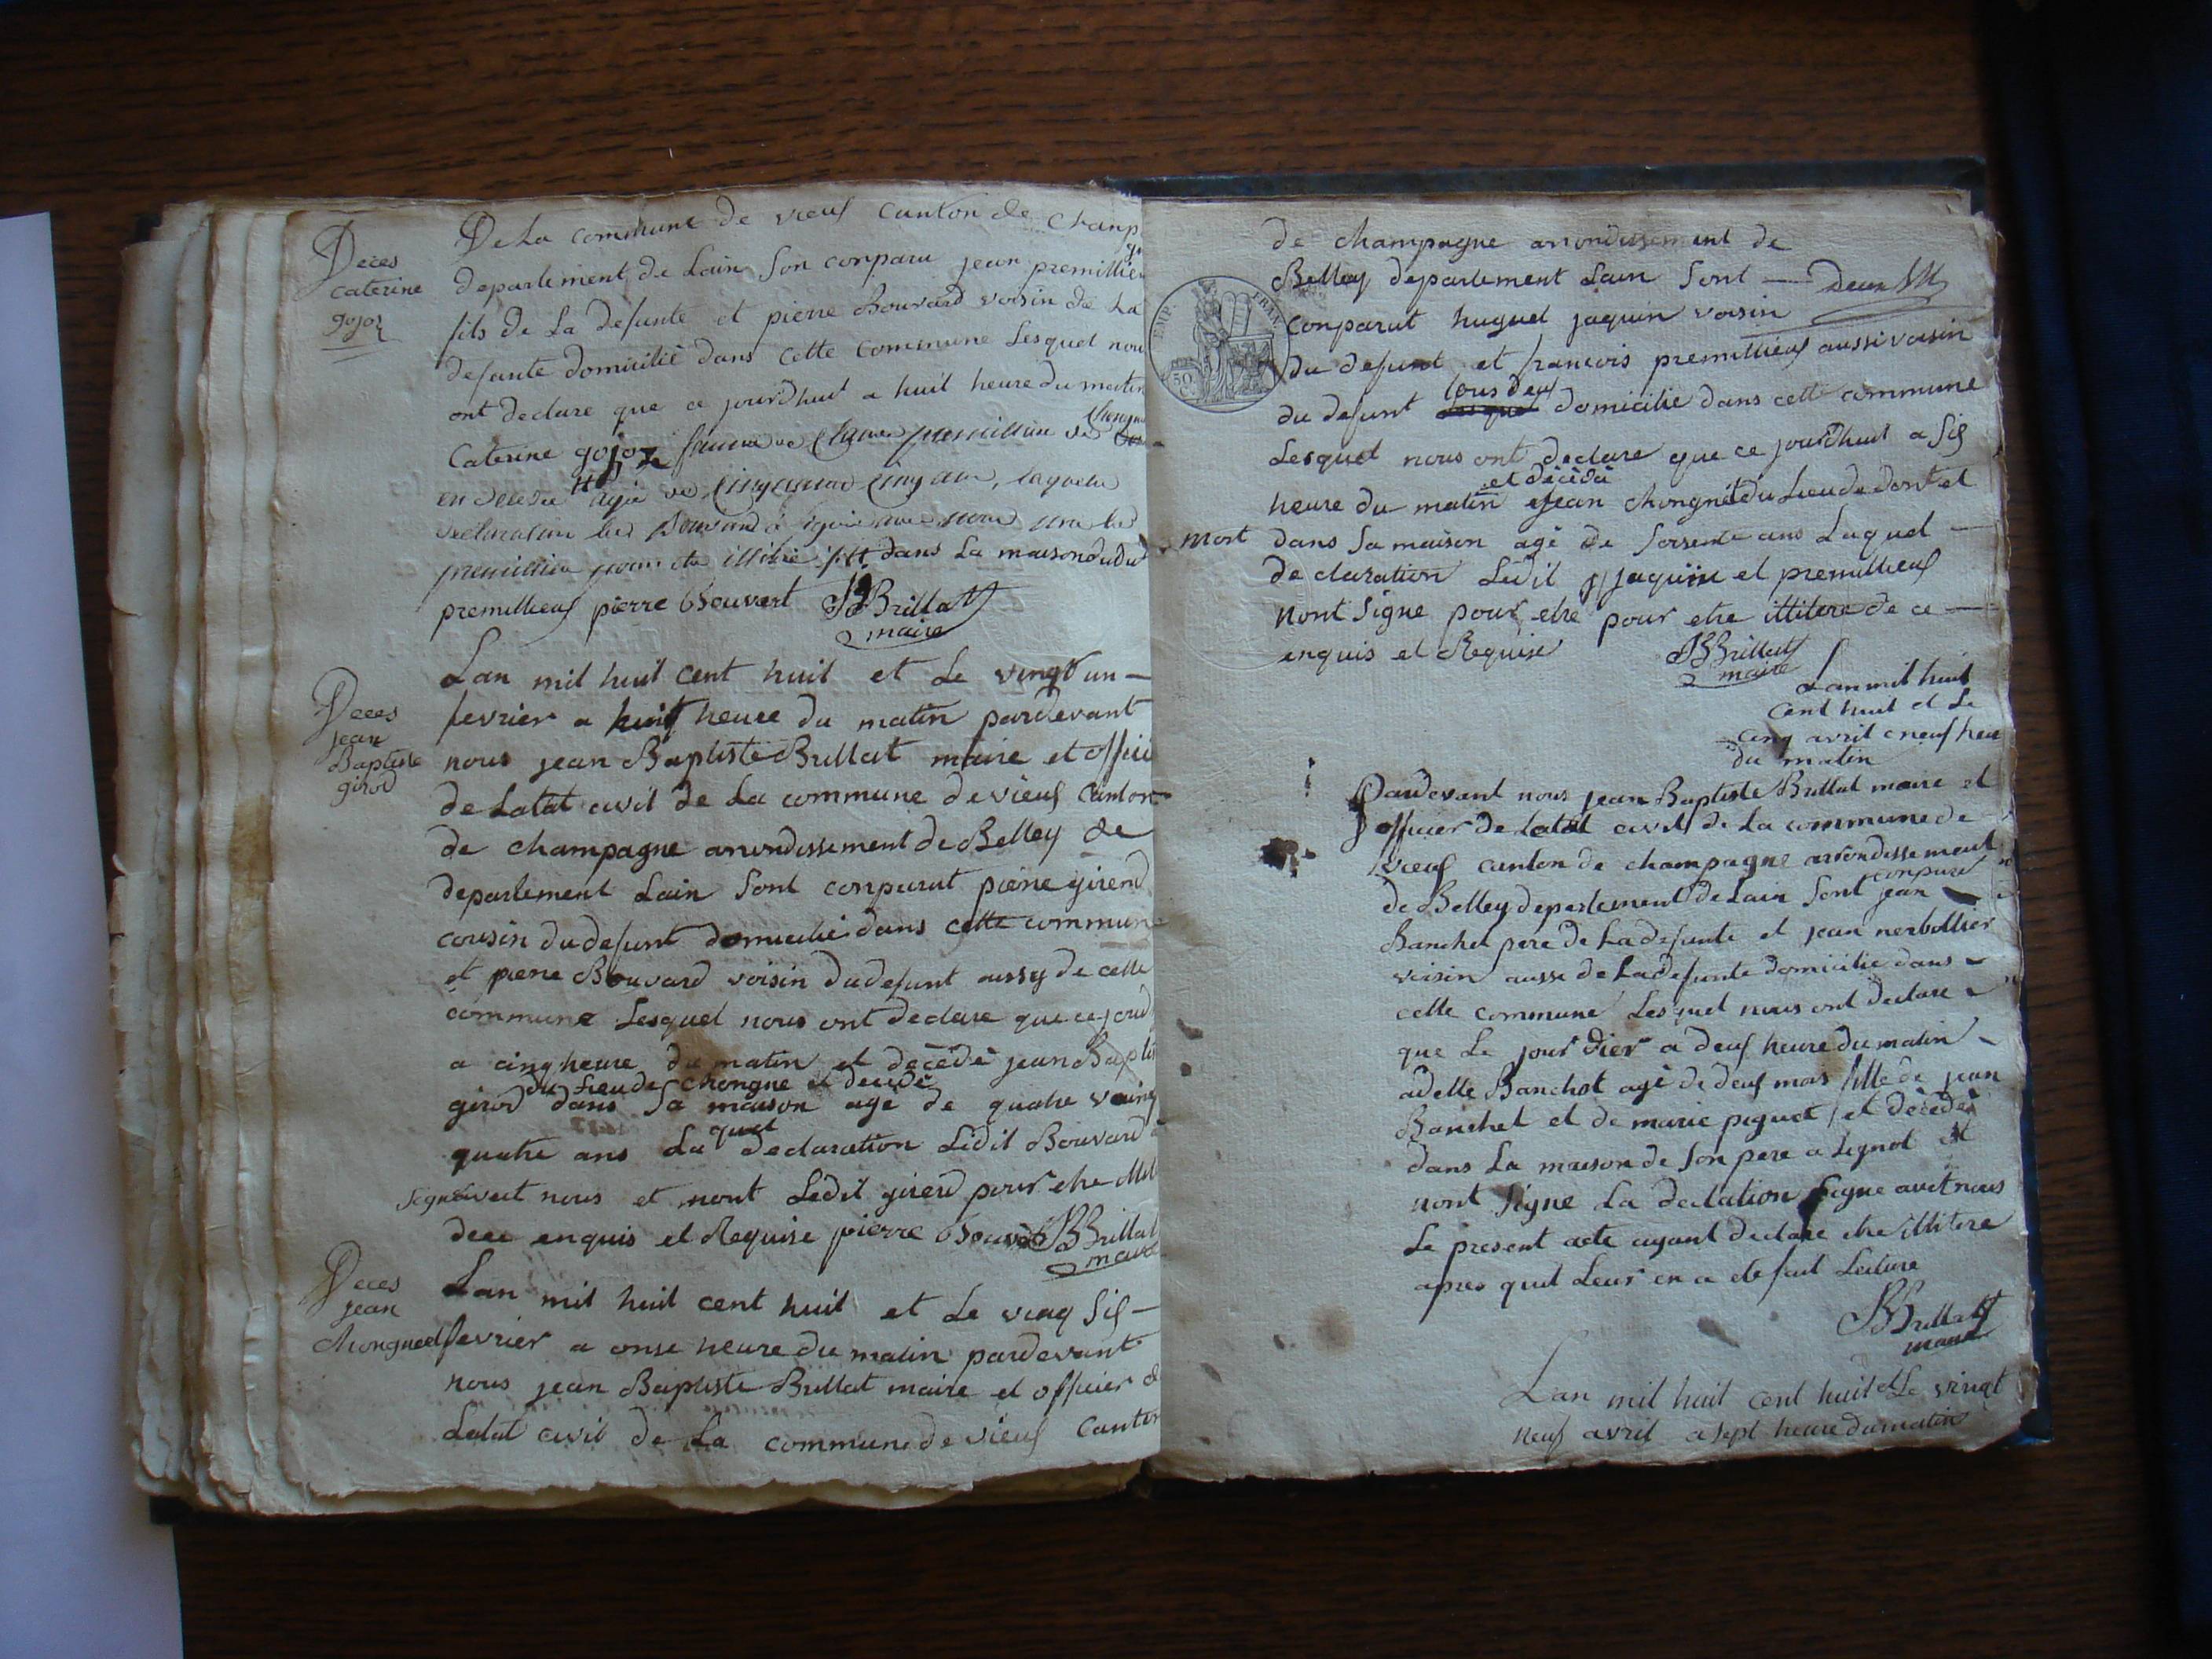 Deces
caterine
gojoz
De La commune de vieuf canton de champ
departement de Lain Son conparu jean premillieu
fils de La defunte et pierre Bouvard voisin de La
defunte domicilié dans cette commune Lesquel nou
ont declare que ce jourdhuit a huit heure du matin
Caterine gojoz femme de premillieu de
en agée de cinquante cinq ans, laquelle
declaration led Bouvard à signé avec nous non led
premillieu pour etre illitéré dans La maison dudit
premillieuf pierre Bouvert JBBrillat
maire
Deces
jean
Baptiste
girod
Lan mil huit cent huit et Le vingt un
fevrier a huit heure du matin pardevant
nous jean Baptiste Brillat maire et offici
de Latat civil de La commune de vieuf Canton
de champagne arrondissement de Belley de
departement Lain Sont conparut pierre girerd
cousin du defunt domicilié dans cette commune
et pierre Bouvard voisin du defunt aussy de cette
commune Lesquel nous ont declare que ce jourd
a cinq heure du matin et decede jean Baptis
du Lieu de chongne et decede
girod dans Sa maison age de quatre vaing
quatre ans La quel declaration Ledit Bouvard a
Signé avect nous et nont Ledit girerd pour etre illit
dece enquis et Requise pierre Bouvard JBBrillat
maire
Deces
jean
chongned
Lan mil huit cent huit et Le vinq Sis
fevrier a onse heure du matin pardevant
nous jean Baptiste Brillat maire et officier de
Latat civil de La commune de vieuf Canton
de champagne arrondissement de
Belley departement Lain Sont
conparut huguet jaquin voisin
EMP. FRAN.
50
du defunt et francois premillieuf aussi voisin
tous deuf
du defunt Lesquel domicilie dans cette commune
Lesquel nous ont declare que ce jourdhuit a Sis
et décédé
heure du matin jean chongnet du Lieu de dont et
mort dans Sa maison agé de Soisente ans Laquel
declaration Ledit jaquin et premillieuf
nont Signe pour etre pour etre illitere de ce
enquis et Requise
JBBrillat
maire
Lan mil huit
cent huit et Le
cinq avril a neuf heur
du matin
Pardevant nous jean Baptiste Brillat maire et
officier de Latat civil de La commune de
vieuf canton de champagne arrondissement
conparu
de Belley departement de Lain Sont jean
Banchet pere de La defunte et jean nerbollier
voisin aussi de La defunte domicilie dans
cette commune Lesquel nous ont declare
que Le jour dier a deuf heure du matin
adelle Banchet agé de deuf mois fille de jean
Banchet et de marie piquet et décédé
dans La maison de Son pere a Lignot et
nont Signe La declation Signe avet nous
Le present acte ayant declare etre illitere
apres quil Leur en a ete fait Lecture
JBBrillat
maire
Lan mil huit cent huit et Le vingt
neuf avril a sept heure du matin